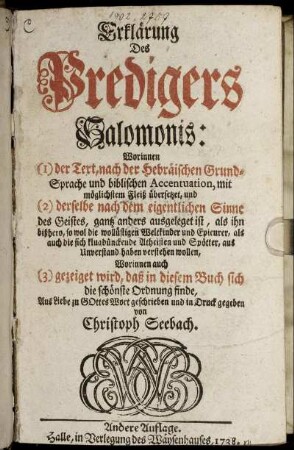 Erklärung
Des
Predigers
Salomonis:
Worinnen
(1) der Text, nach der Hebräischen Grund-
Sprache und biblischen Accentuation, mit
möglichstem Fleiß übersetzet, und
(2) derselbe nach dem eigentlichen Sinne
des Geistes, gantz anders ausgeleget ist, als ihn
bißhero, so wol die wollüstigen Weltkinder und Epicurer, als
auch die sich kluadünckende Atheisten und Spötter, aus
Unverstand haben verstehen wollen,
Worinnen auch
(3) gezeiget wird, daß in diesem Buch sich
die schönste Ordnung finde,
Aus Liebe zu GOttes Wort geschrieben und in Druck gegeben
von
Christoph Seebach.
Andere Auflage.
Halle, in Verlegung des Wäysenhauses, 1738.